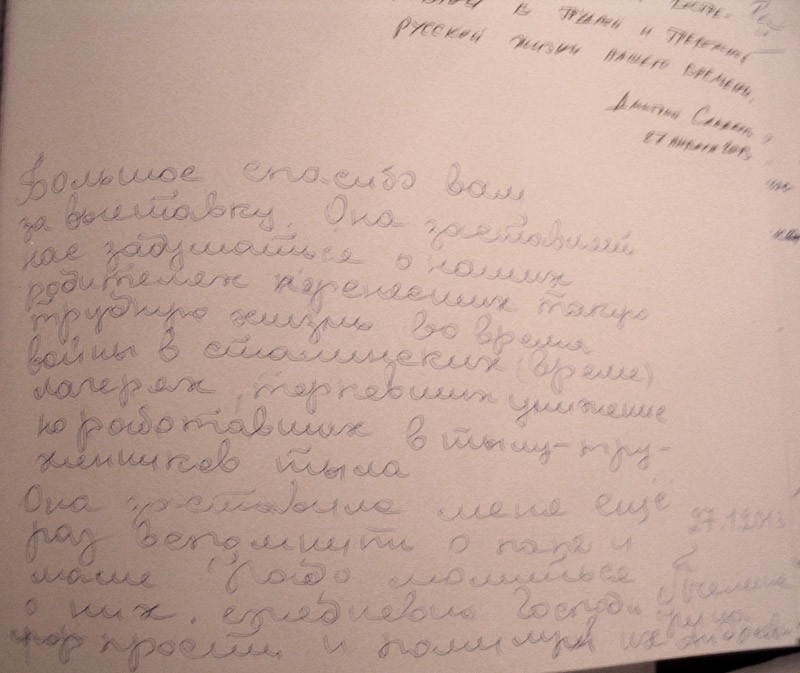 в трудной и тревожной
русской жизни нашего времени.
Дмитрий
27 января 2013
Большое спасибо вам
за выставку. Она заставляет
нас задуматься о наших
родителях перенесших такую
трудную жизнь во время
войны в сталинских (време)
лагерях, терпевших унижение
но работавших в тылу-тру-
жеников тыла
Она заставила меня ещё
раз вспомнить о папе и 27.1.2013
маме Надо молиться
о них. ежедневно Господи
прости и помилуй их